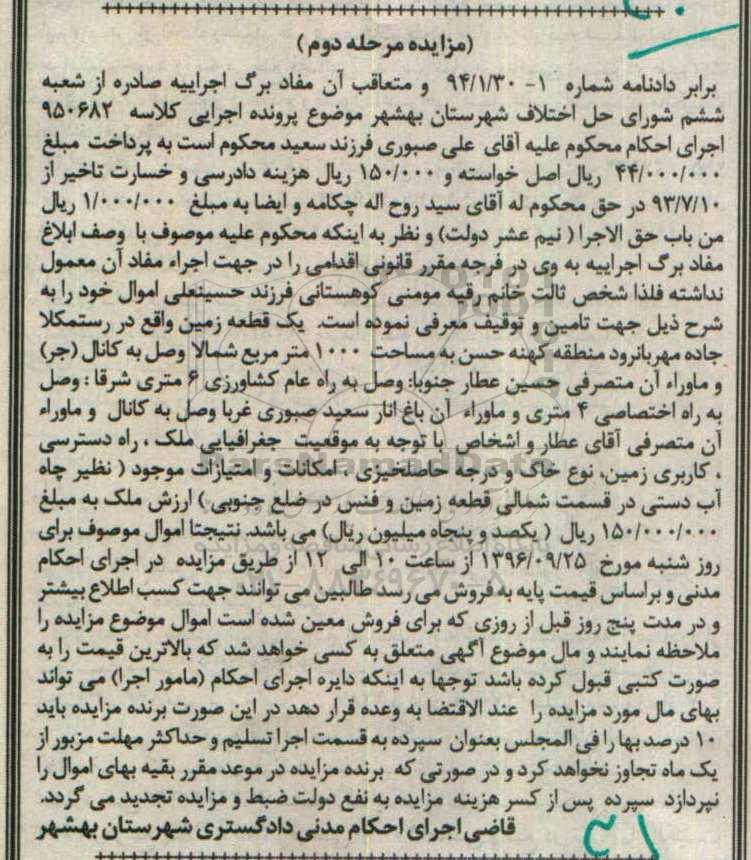 (مزایده مرحله دوم)
برابر دادنامه شماره ۱- ۹۴/۱/۳۰ و متعاقب آن مفاد برگ اجراییه صادره از شعبه
ششم شورای حل اختلاف شهرستان بهشهر موضوع پرونده اجرایی کلاسه ۹۵۰۶۸۲
اجرای احکام محکوم علیه آقای علی صبوری فرزند سعید محکوم است به پرداخت مبلغ
۴۴/۰۰۰/۰۰۰ ریال اصل خواسته و ۱۵۰/۰۰۰ ریال هزینه دادرسی و خسارت تاخیر از
۹۳/۷/۱۰ در حق محکوم له آقای سید روح اله چکامه و ایضا به مبلغ ۱/۰۰۰/۰۰۰ ریال
من باب حق الاجرا ( نیم عشر دولت) و نظر به اینکه محکوم علیه موصوف با وصف ابلاغ
مفاد برگ اجراییه به وی در فرجه مقرر قانونی اقدامی را در جهت اجراء مفاد آن معمول
نداشته فلذا شخص ثالت خانم رقیه مومنی کوهستانی فرزند حسینعلی اموال خود را به
شرح ذیل جهت تامین و توقیف معرفی نموده است. یک قطعه زمین واقع در رستمکلا
جاده مهربانرود منطقه کهنه حسن به مساحت ۱۰۰۰ متر مربع شمالا وصل به کانال (جر)
و ماوراء آن متصرفی حسین عطار جنوبا: وصل به راه عام کشاورزی ۶ متری شرقا : وصل
به راه اختصاصی ۴ متری و ماوراء آن باغ انار سعید صبوری غربا وصل به کانال و ماوراء
آن متصرفی آقای عطار و اشخاص با توجه به موقعیت جغرافیایی ملک ، راه دسترسی
، کاربری زمین، نوع خاک و درجه حاصلخیزی ، امکانات و امتیازات موجود ( نظیر چاه
آب دستی در قسمت شمالی قطعه زمین و فنس در ضلع جنوبی ) ارزش ملک به مبلغ
۱۵۰/۰۰۰/۰۰۰ ریال ( یکصد و پنجاه میلیون ریال) می باشد. نتیجتا اموال موصوف برای
روز شنبه مورخ ۱۳۹۶/۰۹/۲۵ از ساعت ۱۰ الی ۱۲ از طریق مزایده در اجرای احکام
مدنی و براساس قیمت پایه به فروش می رسد طالبین می توانند جهت کسب اطلاع بیشتر
و در مدت پنج روز قبل از روزی که برای فروش معین شده است اموال موضوع مزایده را
ملاحظه نمایند و مال موضوع آگهی متعلق به کسی خواهد شد که بالاترین قیمت را به
صورت کتبی قبول کرده باشد توجها به اینکه دایره اجرای احکام (مامور اجرا) می تواند
بهای مال مورد مزایده را عند الاقتضا به وعده قرار دهد در این صورت برنده مزایده باید
۱۰ درصد بها را فی المجلس بعنوان سپرده به قسمت اجرا تسلیم و حداکثر مهلت مزبور از
یک ماه تجاوز نخواهد کرد و در صورتی که برنده مزایده در موعد مقرر بقیه بهای اموال را
نپردازد سپرده پس از کسر هزینه مزایده به نفع دولت ضبط و مزایده تجدید می گردد.
قاضی اجرای احکام مدنی دادگستری شهرستان بهشهر